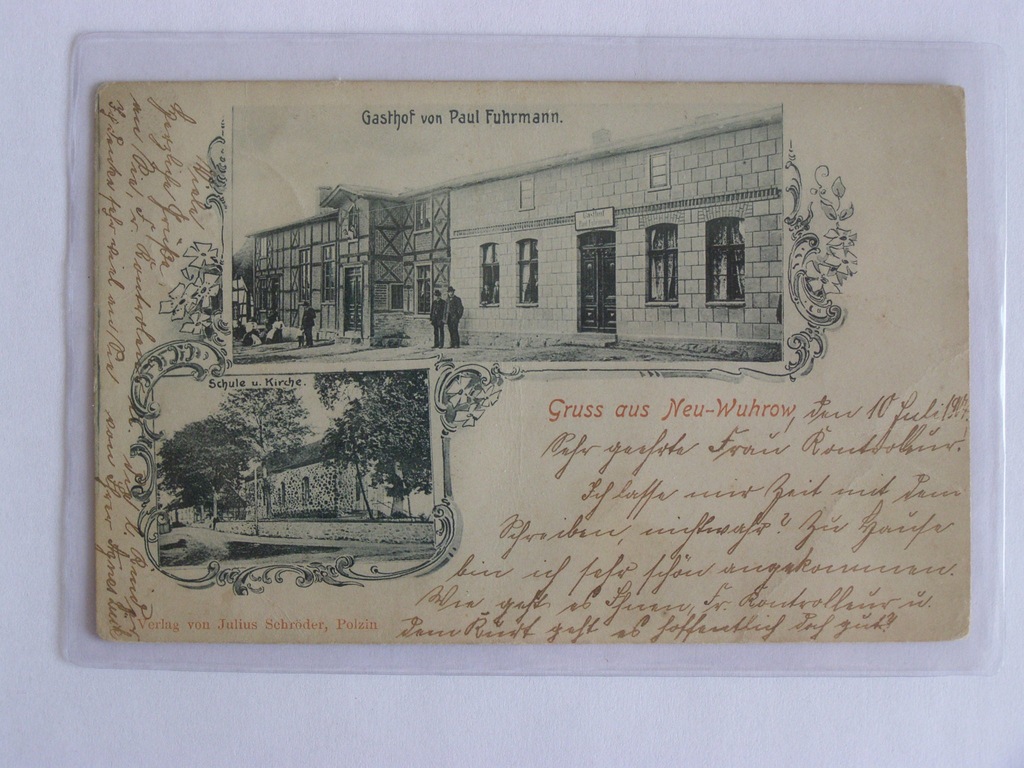 Gasthof von Paul Fuhrmann.
Gasthof
Schule u. Kirche.
Gruss aus Neu-Wuhrow, den 10 Juli
Sehr geehrte Frau Kontrolleur.
Ich lasse mir Zeit mit dem
Schreiben, nichtwahr? Zu Hause
bin ich sehr schön angekommen.
Wie geht es Ihnen, Fr. Kontrolleur u.
dem Kurt geht es hoffentlich doch gut?
Viele
herzliche Grüße
an Sie, Fr. Kontrolleur
Verlag von Julius Schröder, Polzin